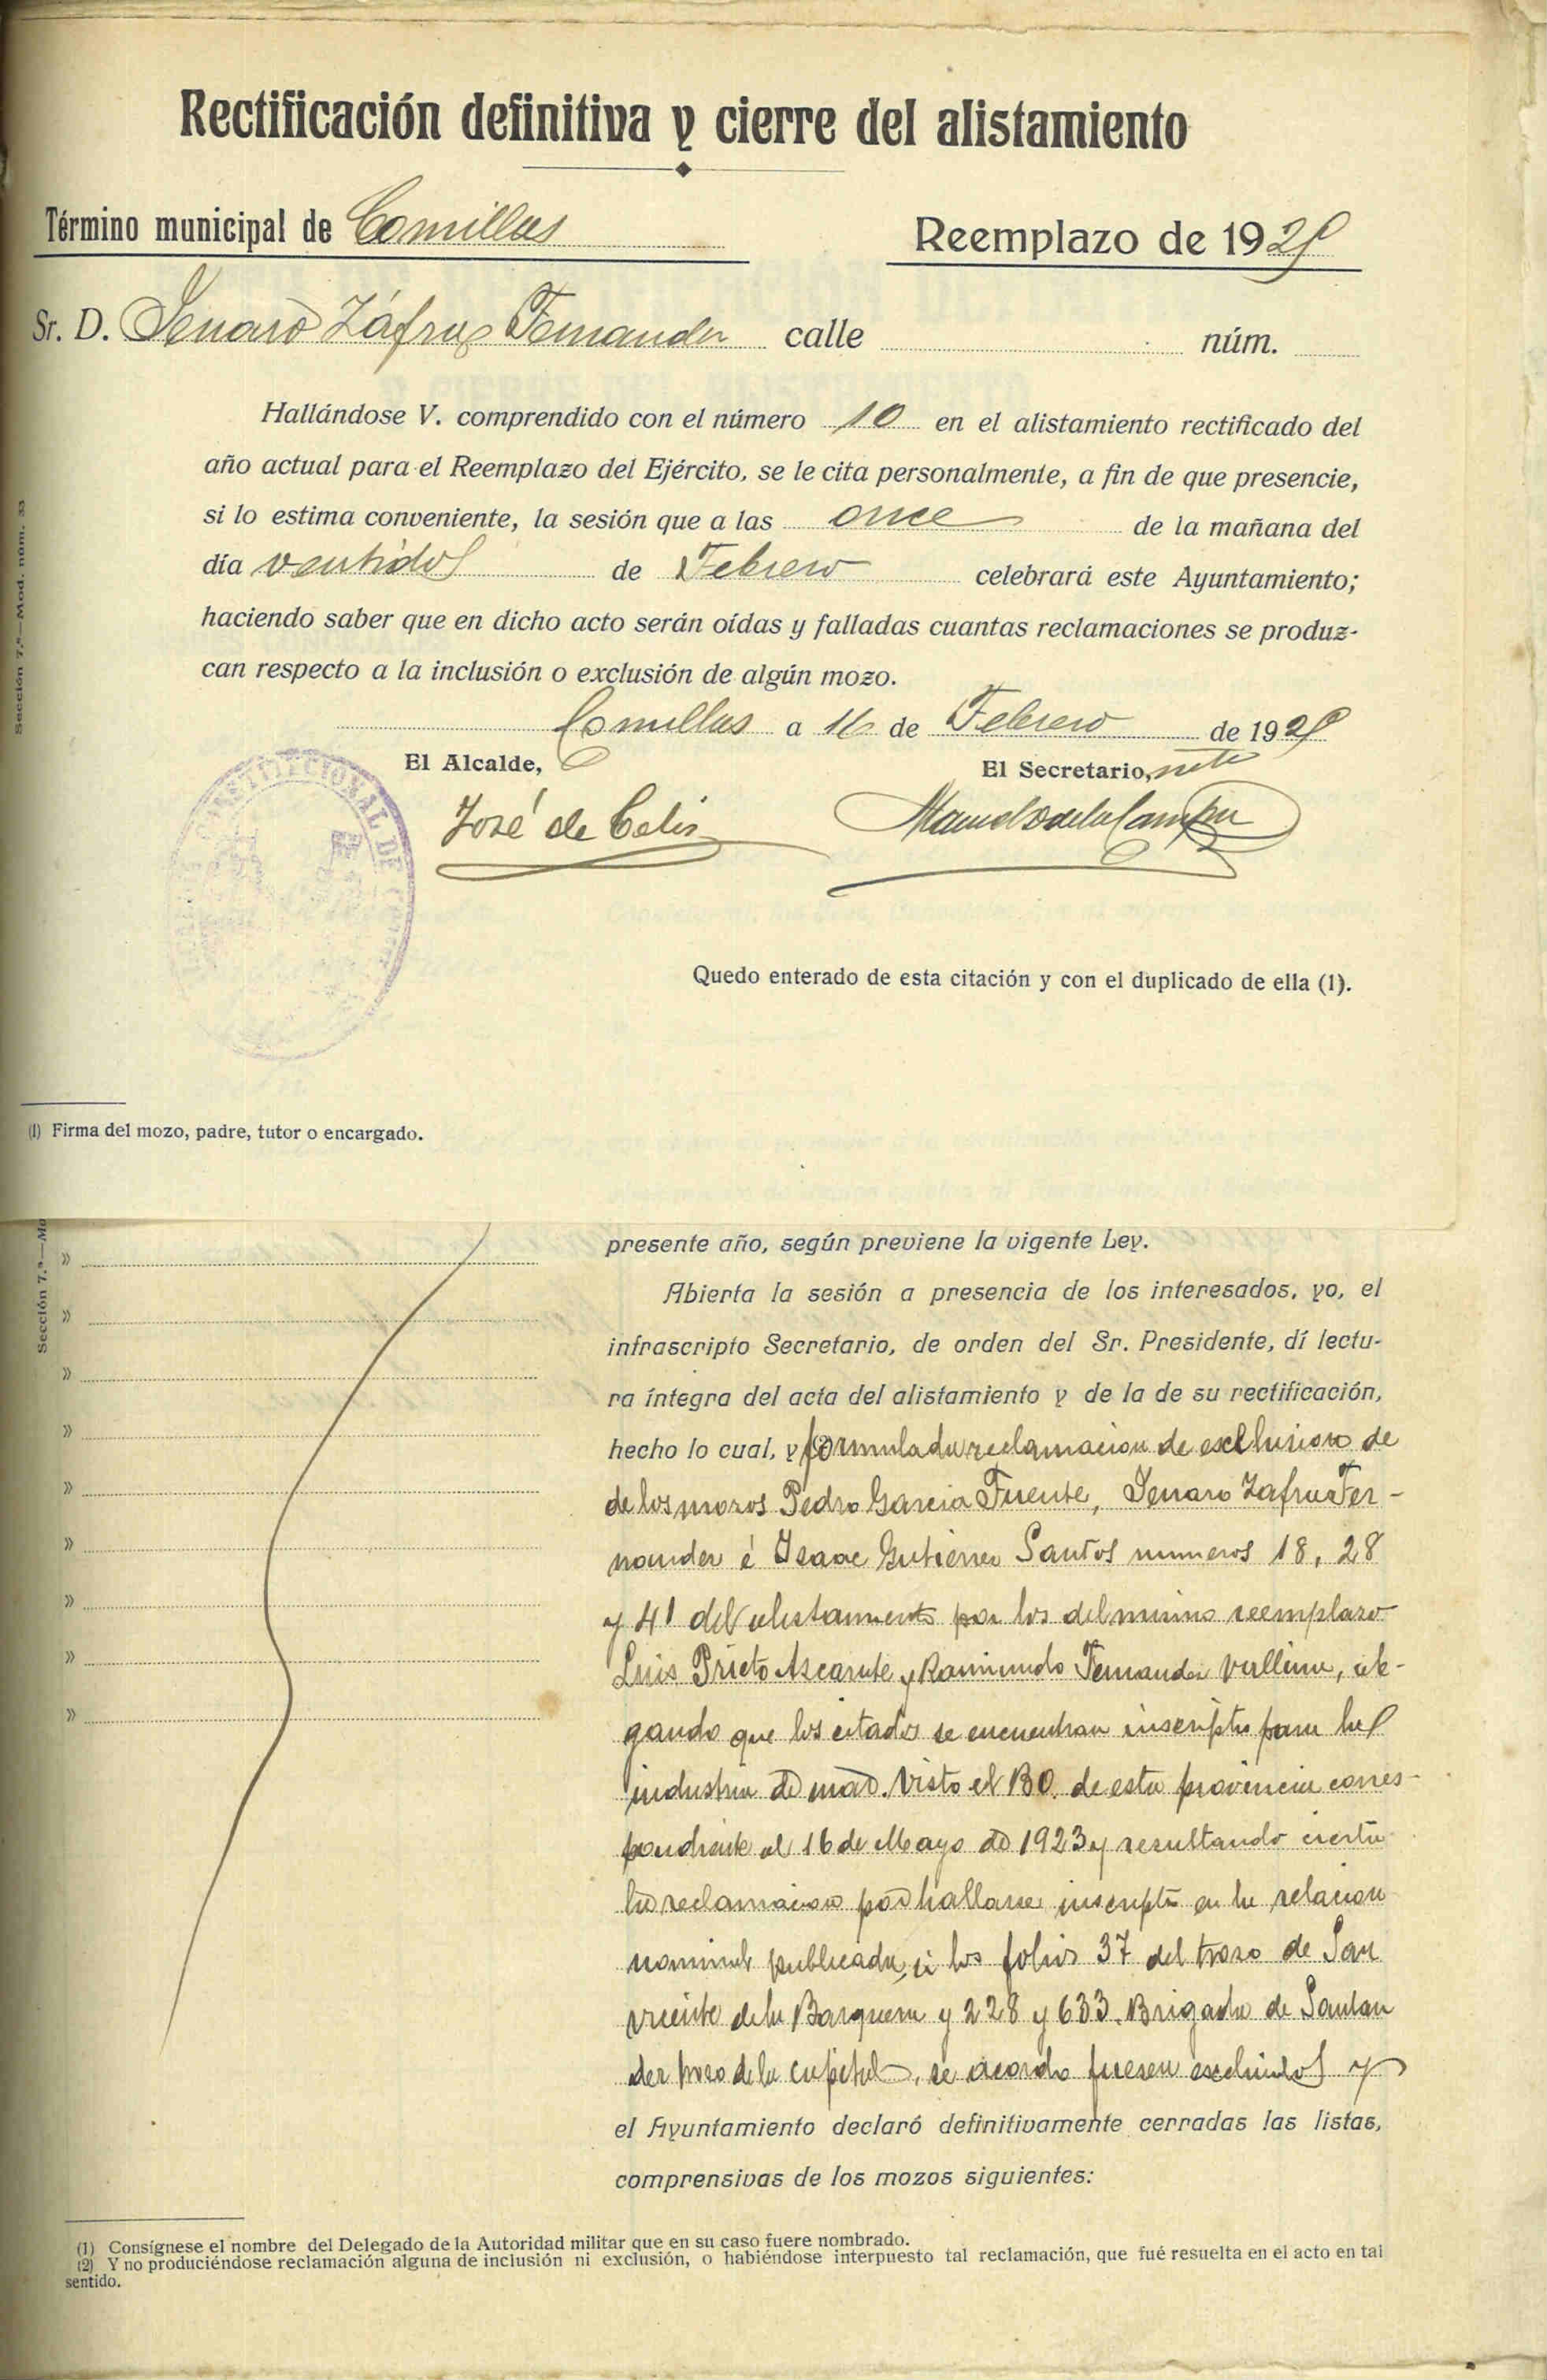 Rectificación definitiva y cierre del alistamiento
Término municipal de Comillas
Reemplazo de 192
Sr. D. Genaro Záfrag Fernandez calle núm.
Hallándose V. comprendido con el número 10 en el alistamiento rectificado del
año actual para el Reemplazo del Ejército, se le cita personalmente, a fin de que presencie,
si lo estima conveniente, la sesión que a las once de la mañana del
día ventidos de Febrero celebrará este Ayuntamiento;
haciendo saber que en dicho acto serán oídas y falladas cuantas reclamaciones se produz-
can respecto a la inclusión o exclusión de algún mozo.
Comillas a 16 de Febrero de 192
El Alcalde,
El Secretario,
José de Celis
Manuel de la Campa
CONSTITUCIONAL DE
Quedo enterado de esta citación y con el duplicado de ella (1).
(1) Firma del mozo, padre, tutor o encargado.
Sección 7.ª—Mod. núm. 33
Sección 7.ª—Mo
»
»
»
»
»
»
»
»
»
presente año, según previene la vigente Ley.
Abierta la sesión a presencia de los interesados, yo, el
infrascripto Secretario, de orden del Sr. Presidente, dí lectu-
ra íntegra del acta del alistamiento y de la de su rectificación,
hecho lo cual, y (2) formulada reclamacion de esclusion de
de los mozos Pedro Garcia Fuente, Genaro Zafrag Fer-
nandez é Isaac Gutierrez Santos numeros 18, 28
y 41 del alistamiento por los del mismo reemplazo
Luis Prieto Azcarate y Raimundo Fernandez Vallina, ale-
gando que los citados se encuentran inscriptos para las
industria de mar. Visto el BO. de esta provincia corres-
pondiente al 16 de Mayo de 1923 y resultando cierta
la reclamacion por hallarse inscripto en la relacion
nominal publicada, á los folios 37 del trozo de San
Vicente de la Barquera y 228 y 633. Brigada de Santan
der trozo de la capital, se acordo fuesen escluidos y
el Ayuntamiento declaró definitivamente cerradas las listas,
comprensivas de los mozos siguientes:
(1) Consígnese el nombre del Delegado de la Autoridad militar que en su caso fuere nombrado.
(2) Y no produciéndose reclamación alguna de inclusión ni exclusión, o habiéndose interpuesto tal reclamación, que fué resuelta en el acto en tal
sentido.